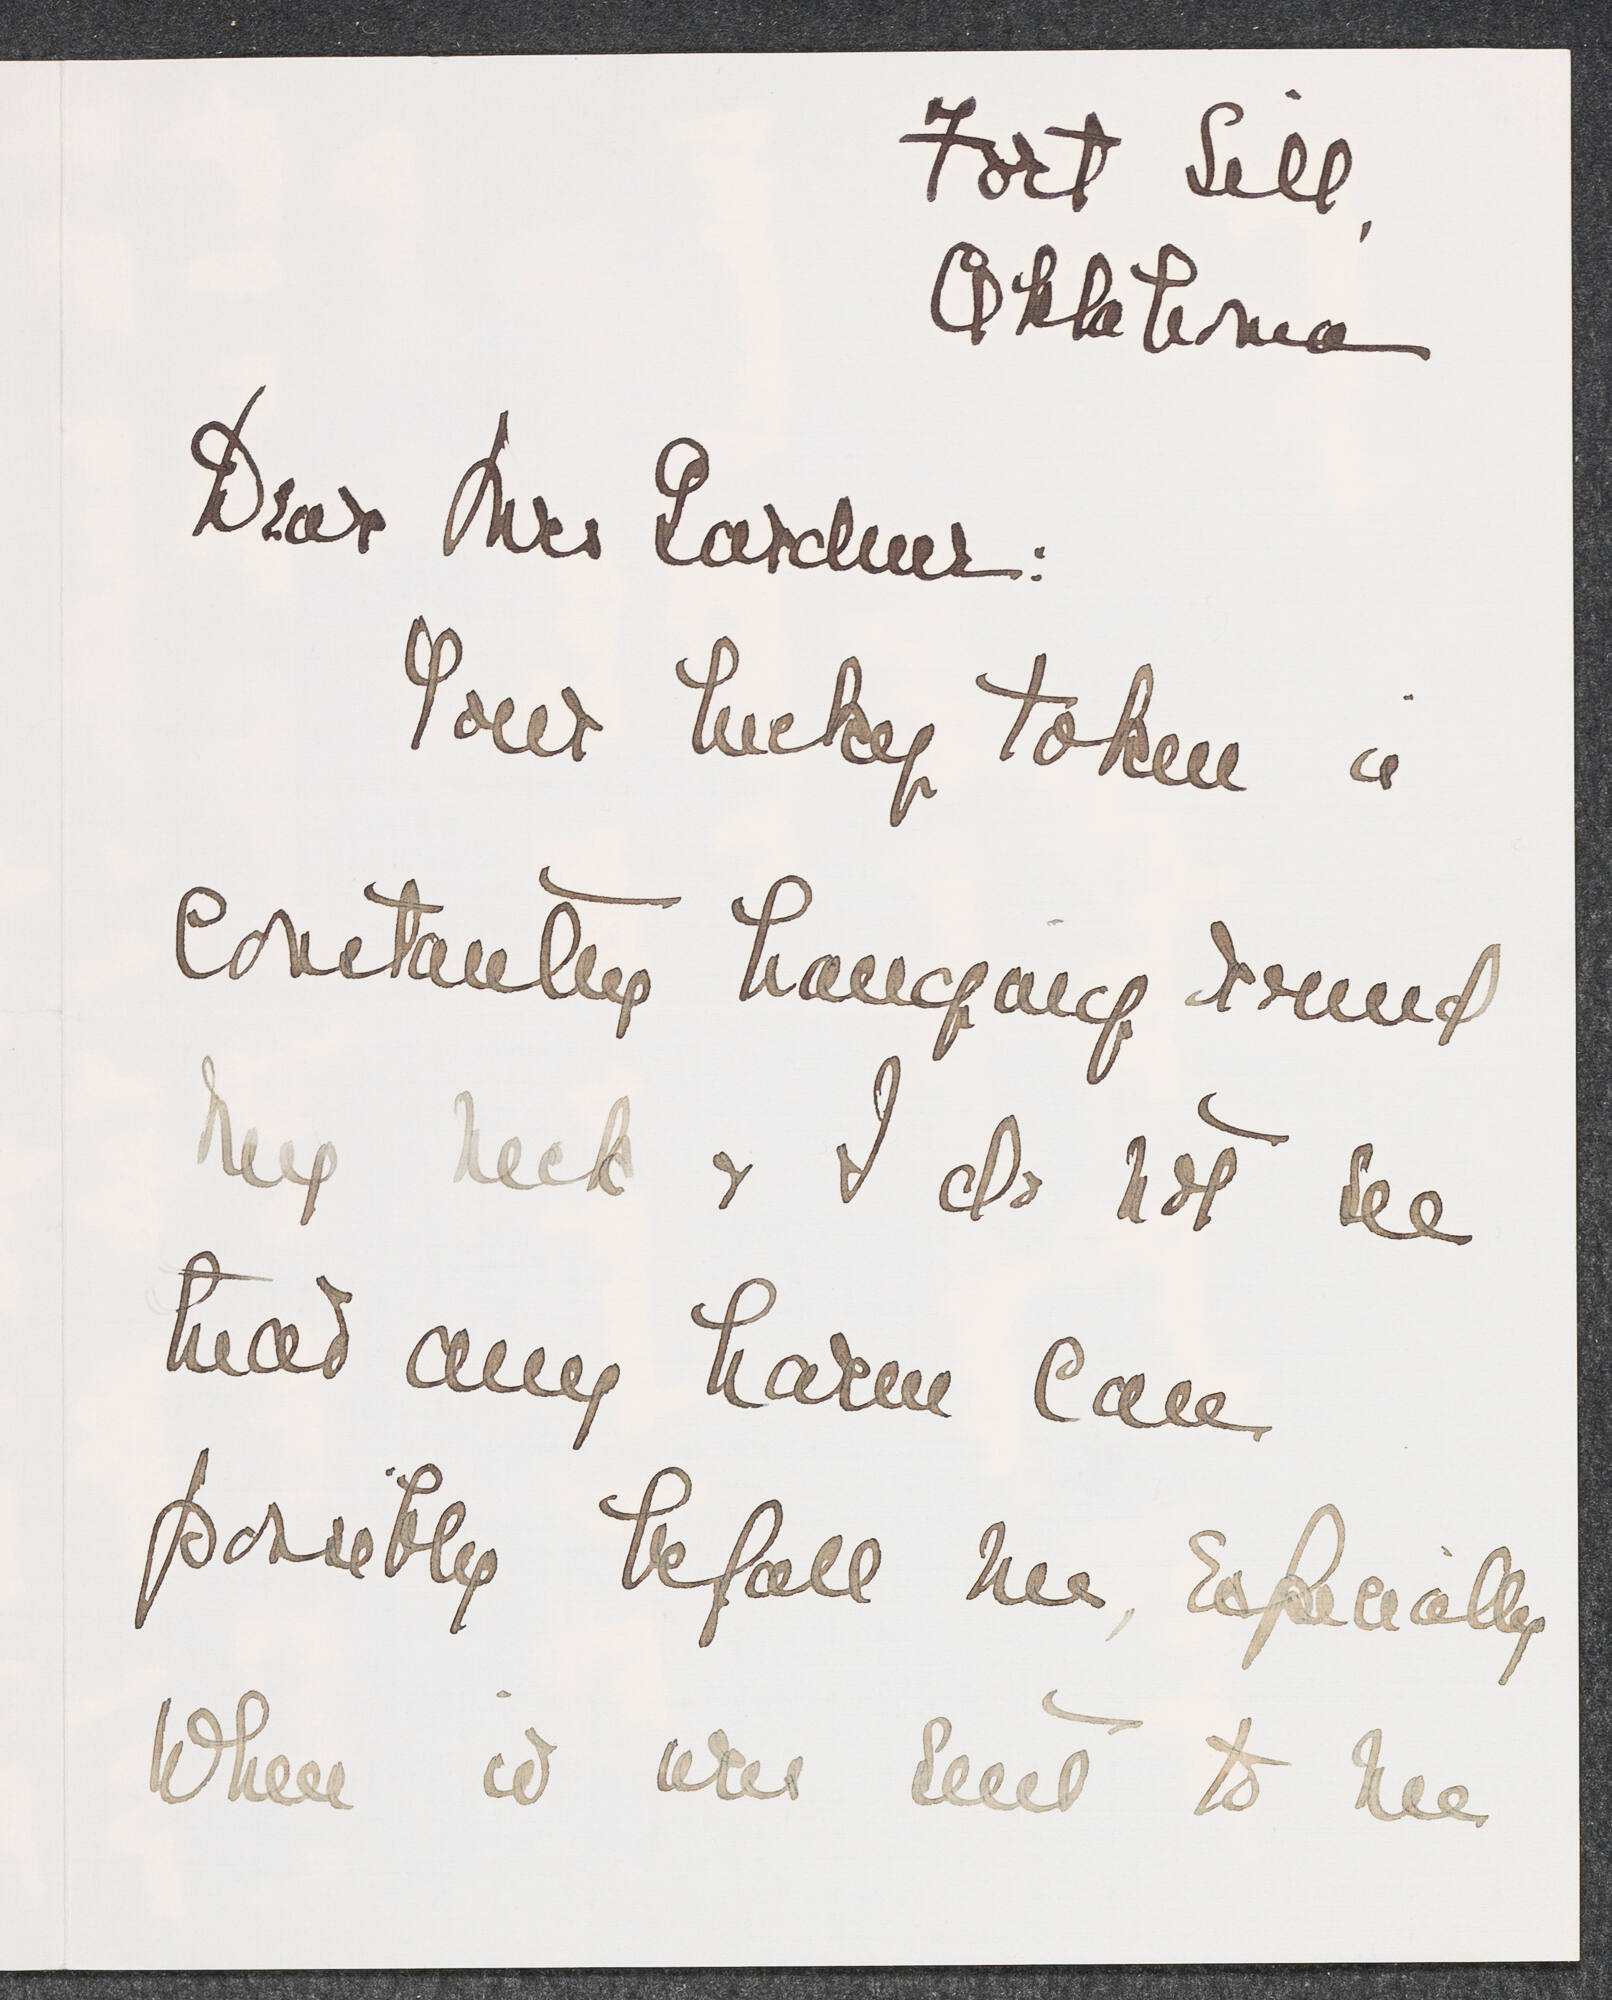 Fort Sill,
Oklahoma
Dear Mrs Gardner:
Your lucky token is
constantly hanging round
my neck & I do not see
that any harm can
possibly befall me, especially
when it was sent to me